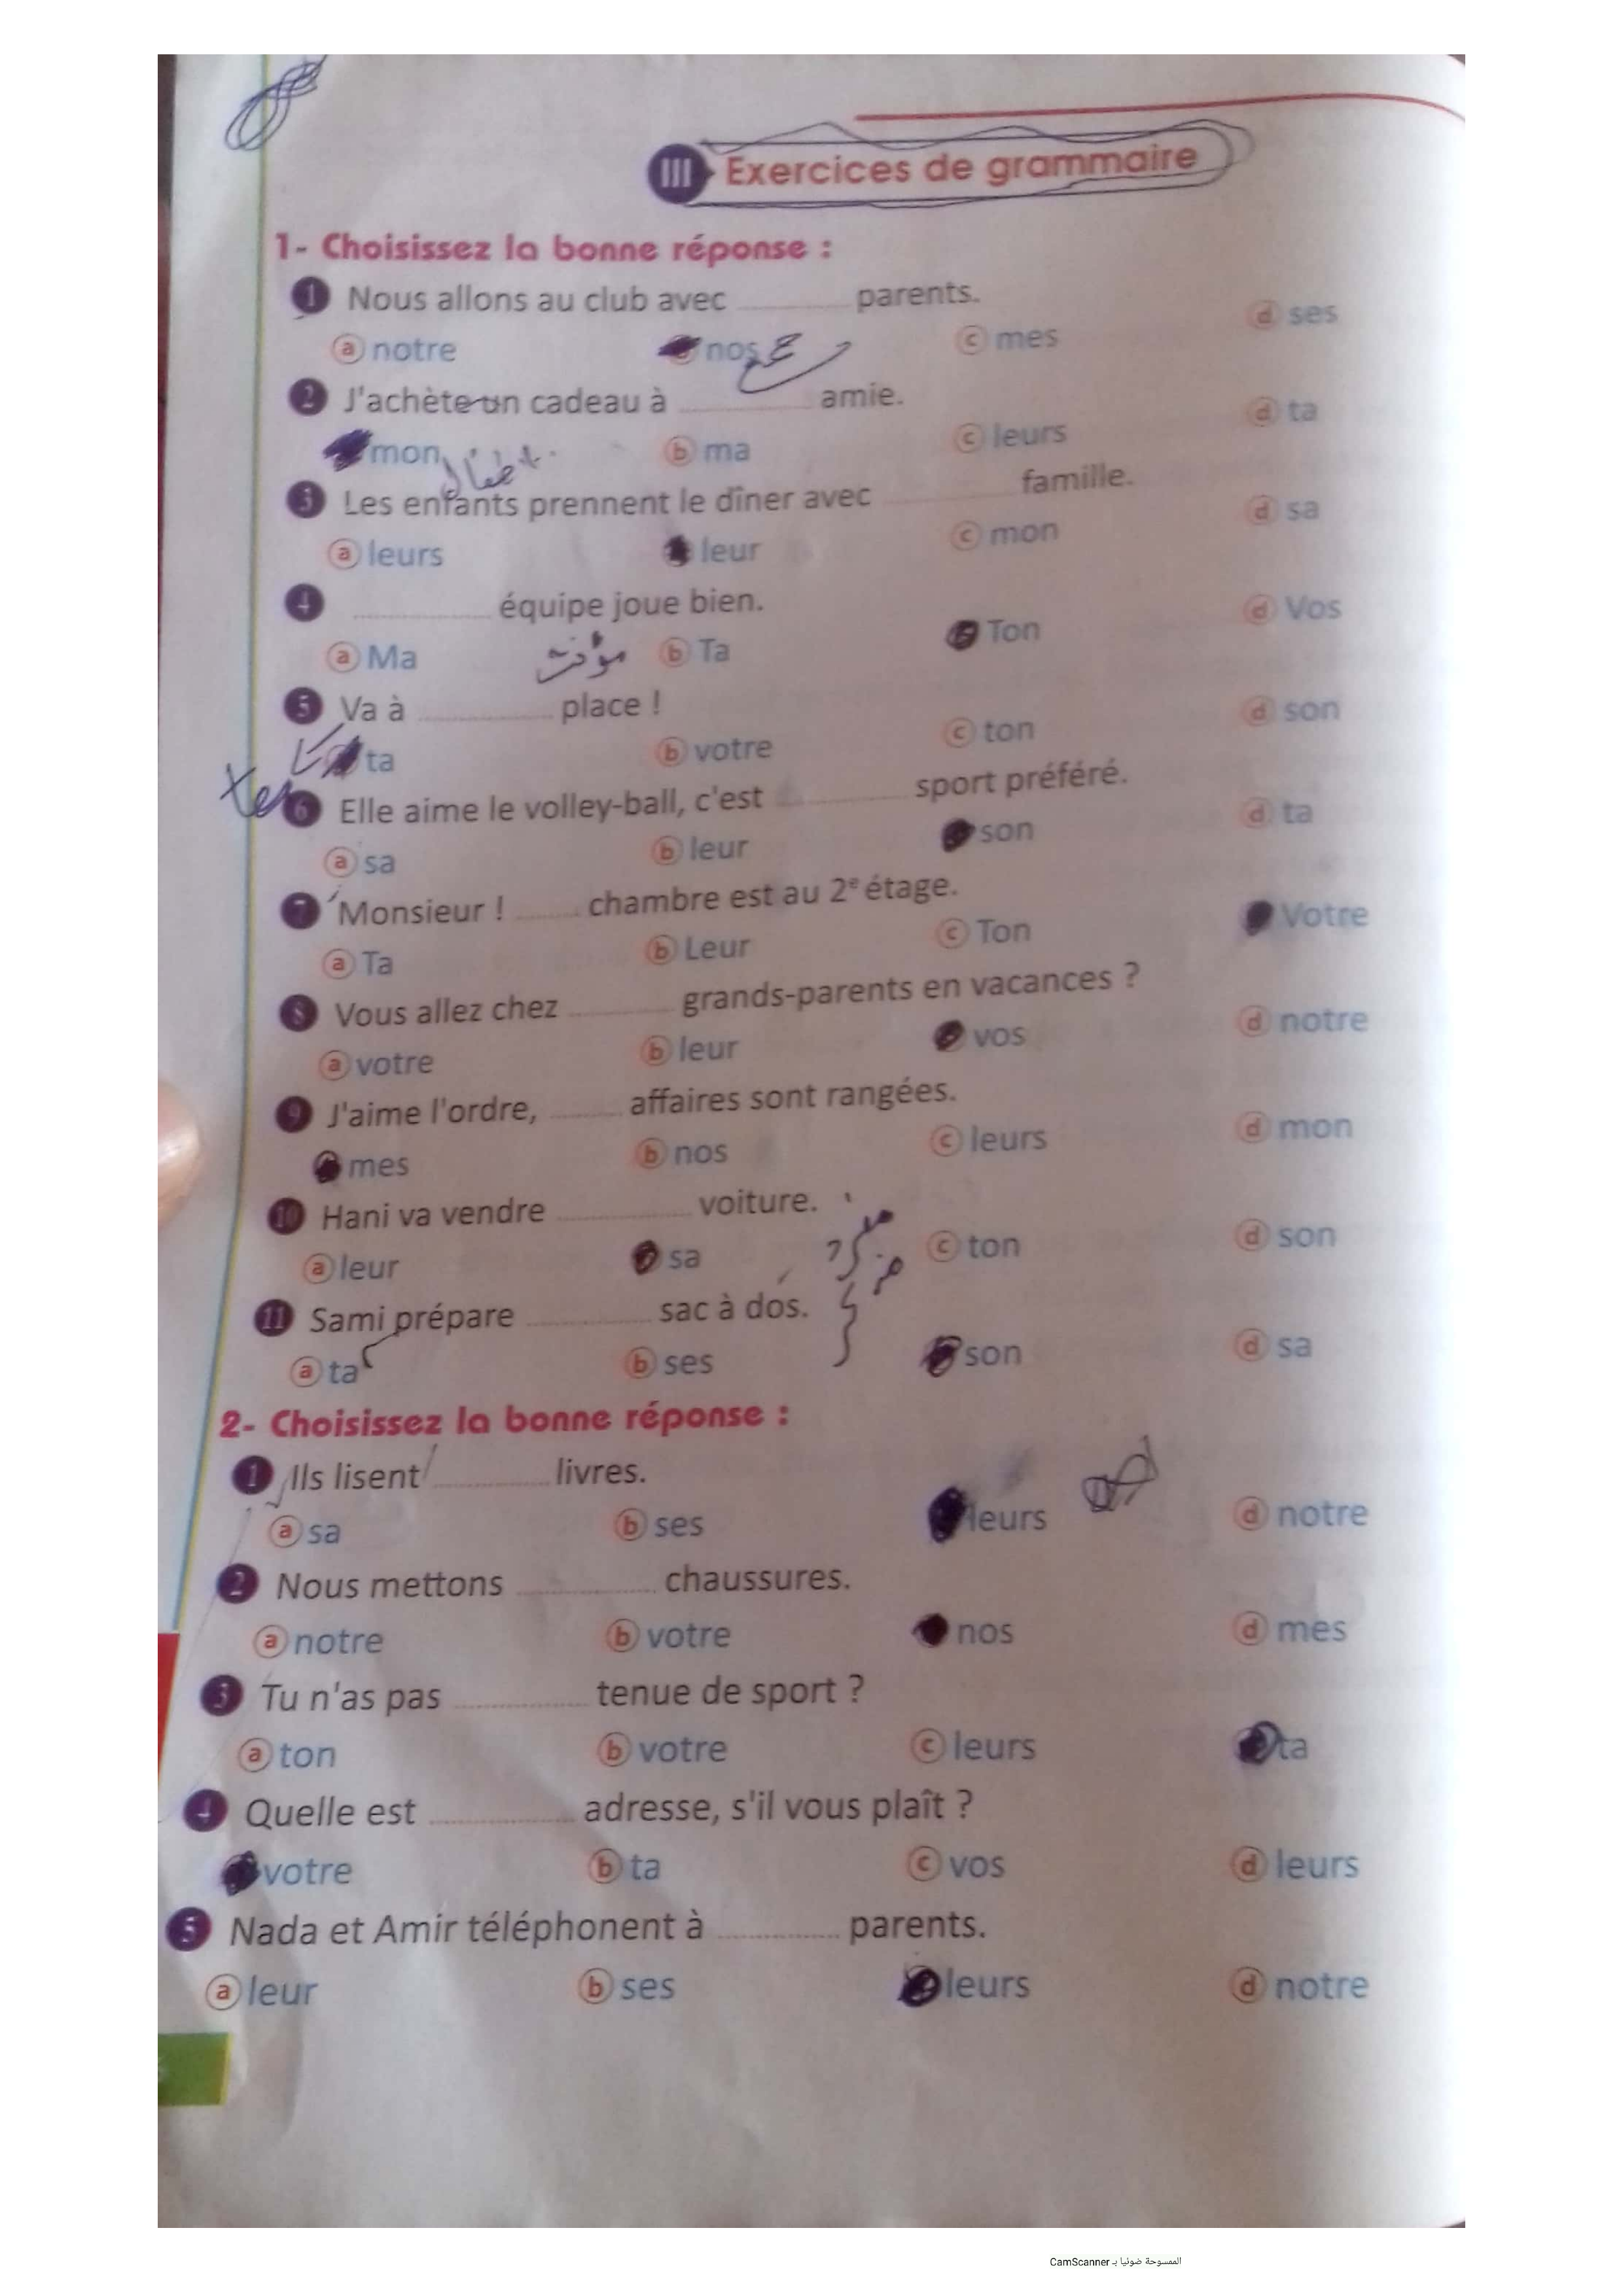 III Exercices de grammaire
1- Choisissez la bonne réponse :
1 Nous allons au club avec ............ parents.
a notre nos c mes d ses
2 J'achète un cadeau à ............ amie.
mon b ma c leurs d ta
3 Les enfants prennent le dîner avec ............ famille.
a leurs leur c mon d sa
4 ............ équipe joue bien.
a Ma مؤنث b Ta Ton d Vos
5 Va à ............ place !
ta b votre c ton d son
6 Elle aime le volley-ball, c'est ............ sport préféré.
a sa b leur son d ta
7 Monsieur ! ........ chambre est au 2e étage.
a Ta b Leur c Ton Votre
8 Vous allez chez ............ grands-parents en vacances ?
a votre b leur vos d notre
9 J'aime l'ordre, ........ affaires sont rangées.
mes b nos c leurs d mon
10 Hani va vendre ............ voiture.
a leur sa c ton d son
11 Sami prépare ............ sac à dos.
a ta b ses son d sa
2- Choisissez la bonne réponse :
1 Ils lisent ............ livres.
a sa b ses leurs d notre
2 Nous mettons ............ chaussures.
a notre b votre nos d mes
3 Tu n'as pas ............ tenue de sport ?
a ton b votre c leurs ta
4 Quelle est ............ adresse, s'il vous plaît ?
votre b ta c vos d leurs
5 Nada et Amir téléphonent à ............ parents.
a leur b ses leurs d notre
الممسوحة ضوئيا بـ CamScanner